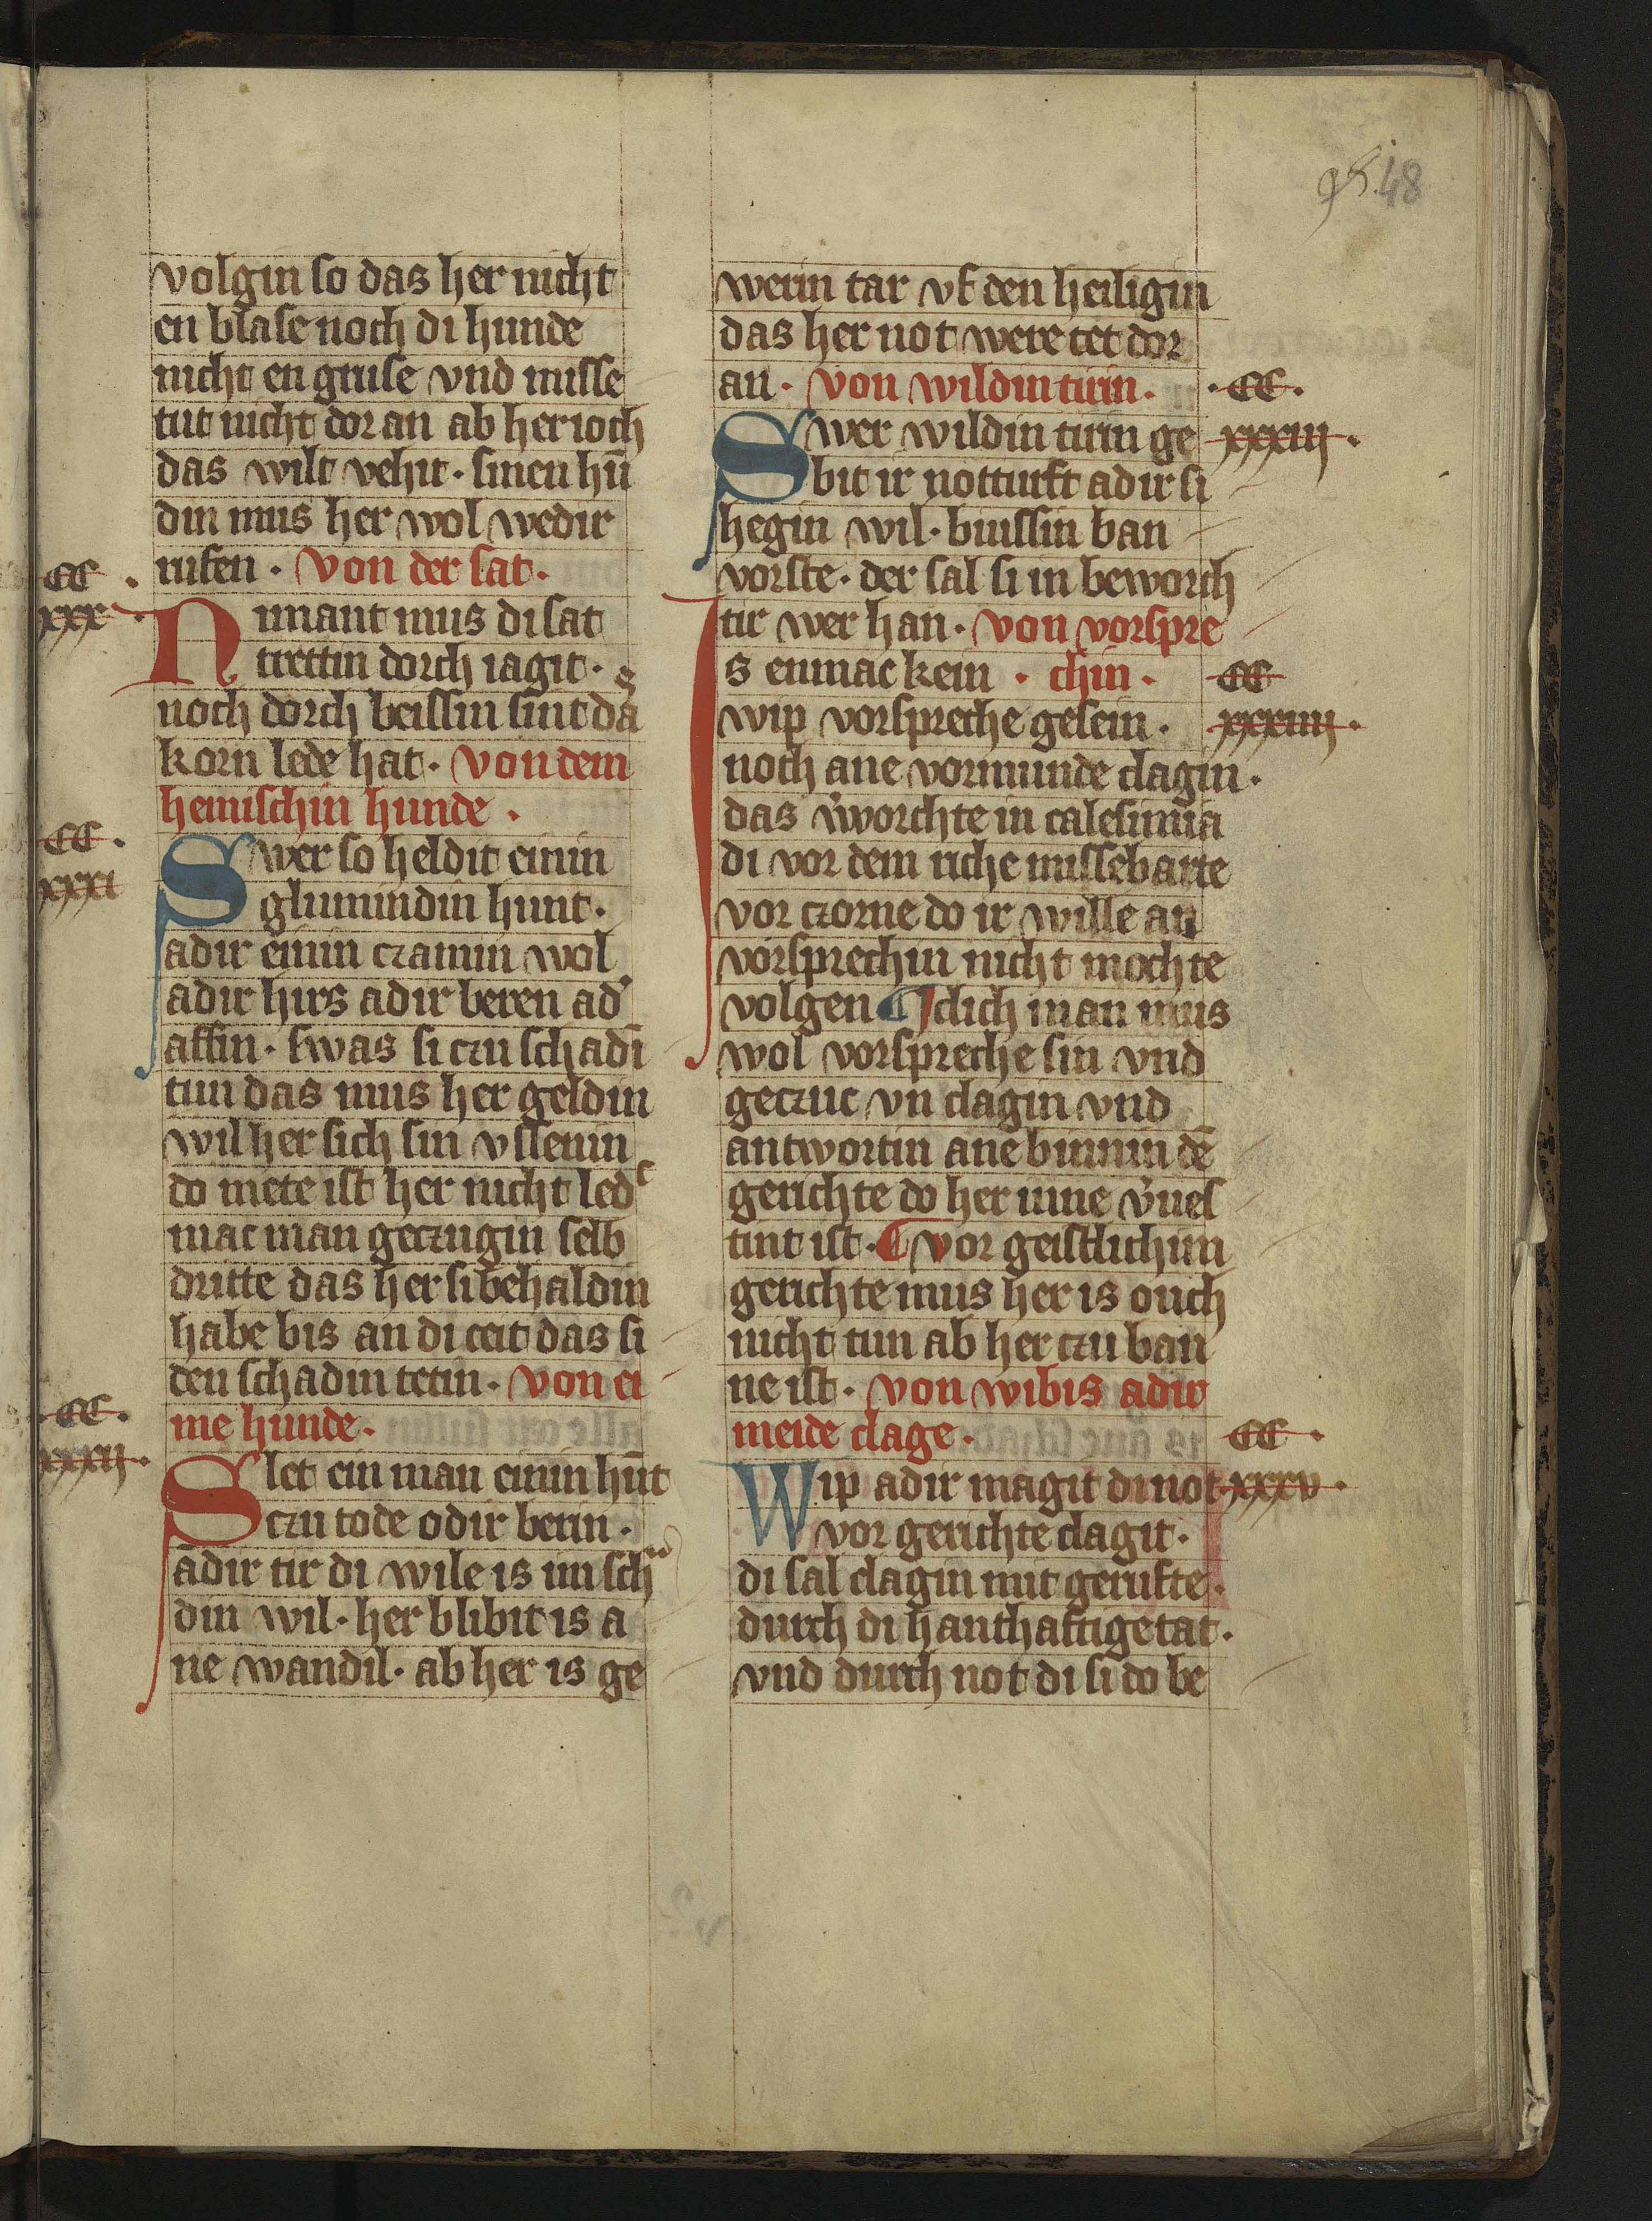 48
volgin so das her nicht
en blase noch di hunde
nicht en gruse vnd misse
tut nicht dor an ab her ioch
das wilt vehit · sinen hū
din mus her wol wedir
rufen · Von der sat ·
CC ·
xxx ·
Nimant mus di sat
trettin dorch iagit ·
noch dorch beissin sint da
korn lede hat · von dem
hemischin hunde ·
CC ·
xxxi
Swer so heldit einin
glumindin hunt ·
adir einin czamin wol
adir hirs adir beren ad'
affin · swas si czu schadī
tun das mus her geldin
wil her sich sin vssenin
do mete ist her nicht led
mac man geczugin selb
dritte das her si behaldin
habe bis an di ceit das si
den schadin tetin · von ei
me hunde ·
· CC ·
xxxii ·
Slet ein man einin hūt
czu tode odir berin ·
adir tir di wile is im sch
din wil · her blibit is a
ne wandil · ab her is ge
werin tar vf den heiligin
das her not were tet dor
an · von wildin tirin ·
· CC ·
xxxiii ·
Swer wildin tirin ge
bit ir notturft adir si
hegin wil · buissin ban
vorste · der sal si in beworch
tir wer han · von vorspre
Is enmac kein · chin ·
CC
xxxiiii ·
wip vorspreche gesein ·
noch ane vormunde clagin ·
das v'worchte in calefurnia
di vor dem riche missebarte
vor czorne do ir wille an
vorsprechin nicht mochte
volgen ¶ Iclich man mus
wol vorspreche sin vnd
geczuc vn clagin vnd
antwortin ane binnin dē
gerichte do her inne v'ues
tint ist · ¶ vor geistlichim
gerichte mus her is ouch
nicht tun ab her czu ban
ne ist · von wibis adir
meide clage ·
CC ·
xxxv ·
Wip adir magit di not
vor gerichte clagit ·
di sal clagin mit gerufte ·
durch di hanthaftige tat ·
vnd durch not di si do be